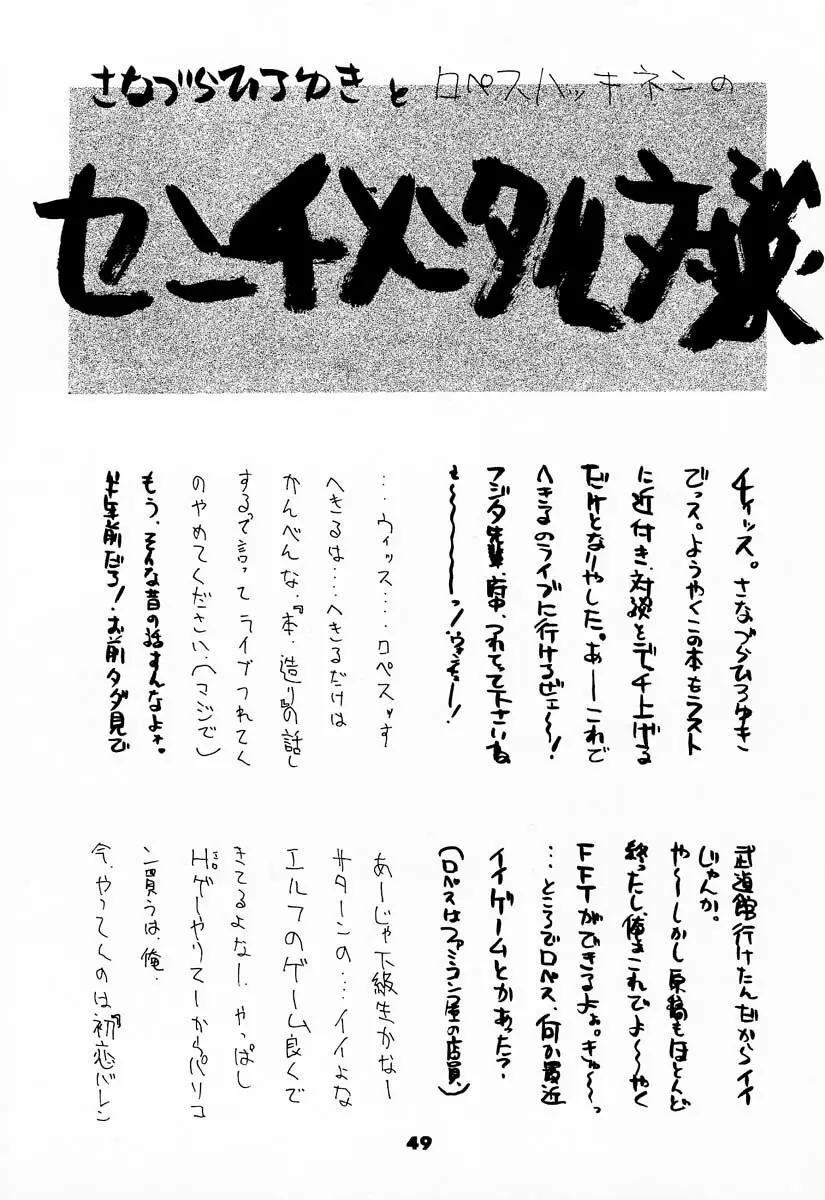 さなづらひろゆきとロペスハッキネンの
センチメンタル対談
チィッス。さなづらひろゆき
でっス。ようやくこの本もラスト
に近付き、対談とデッチ上げる
だけとなりやした。あーーこれで
へきるのライブに行けるぜェ〜〜!
フジタ先輩、府中、つれてって下さいね
ェ〜〜〜〜〜っ!
…ウィッス…ロペスッす
へきるは…へきるだけは
かんべんな、『本造り』の話し
するって言ってライブつれてく
のやめてください、(マジで)
もう、そんな昔の話すんなよォ。
半年前だろ!お前タダ見で
武道館行けたんだからイイ
じゃんか。
や〜〜しかし原稿もほとんど
終ったし、俺もこれでよ〜〜やく
FFTができるよぉ。きゅ〜〜っ
…ところでロペス、何か最近
イイゲームとかあった?
(ロペスはファミコン屋の店員)
あーじゃ下級生かなー
サターンの…イイよな
エルフのゲーム良くで
きてるよなー、やっぱし
Hゲーやりてーからパソコ
ン買うは、俺、
今、やってくのは『初恋バレン
49